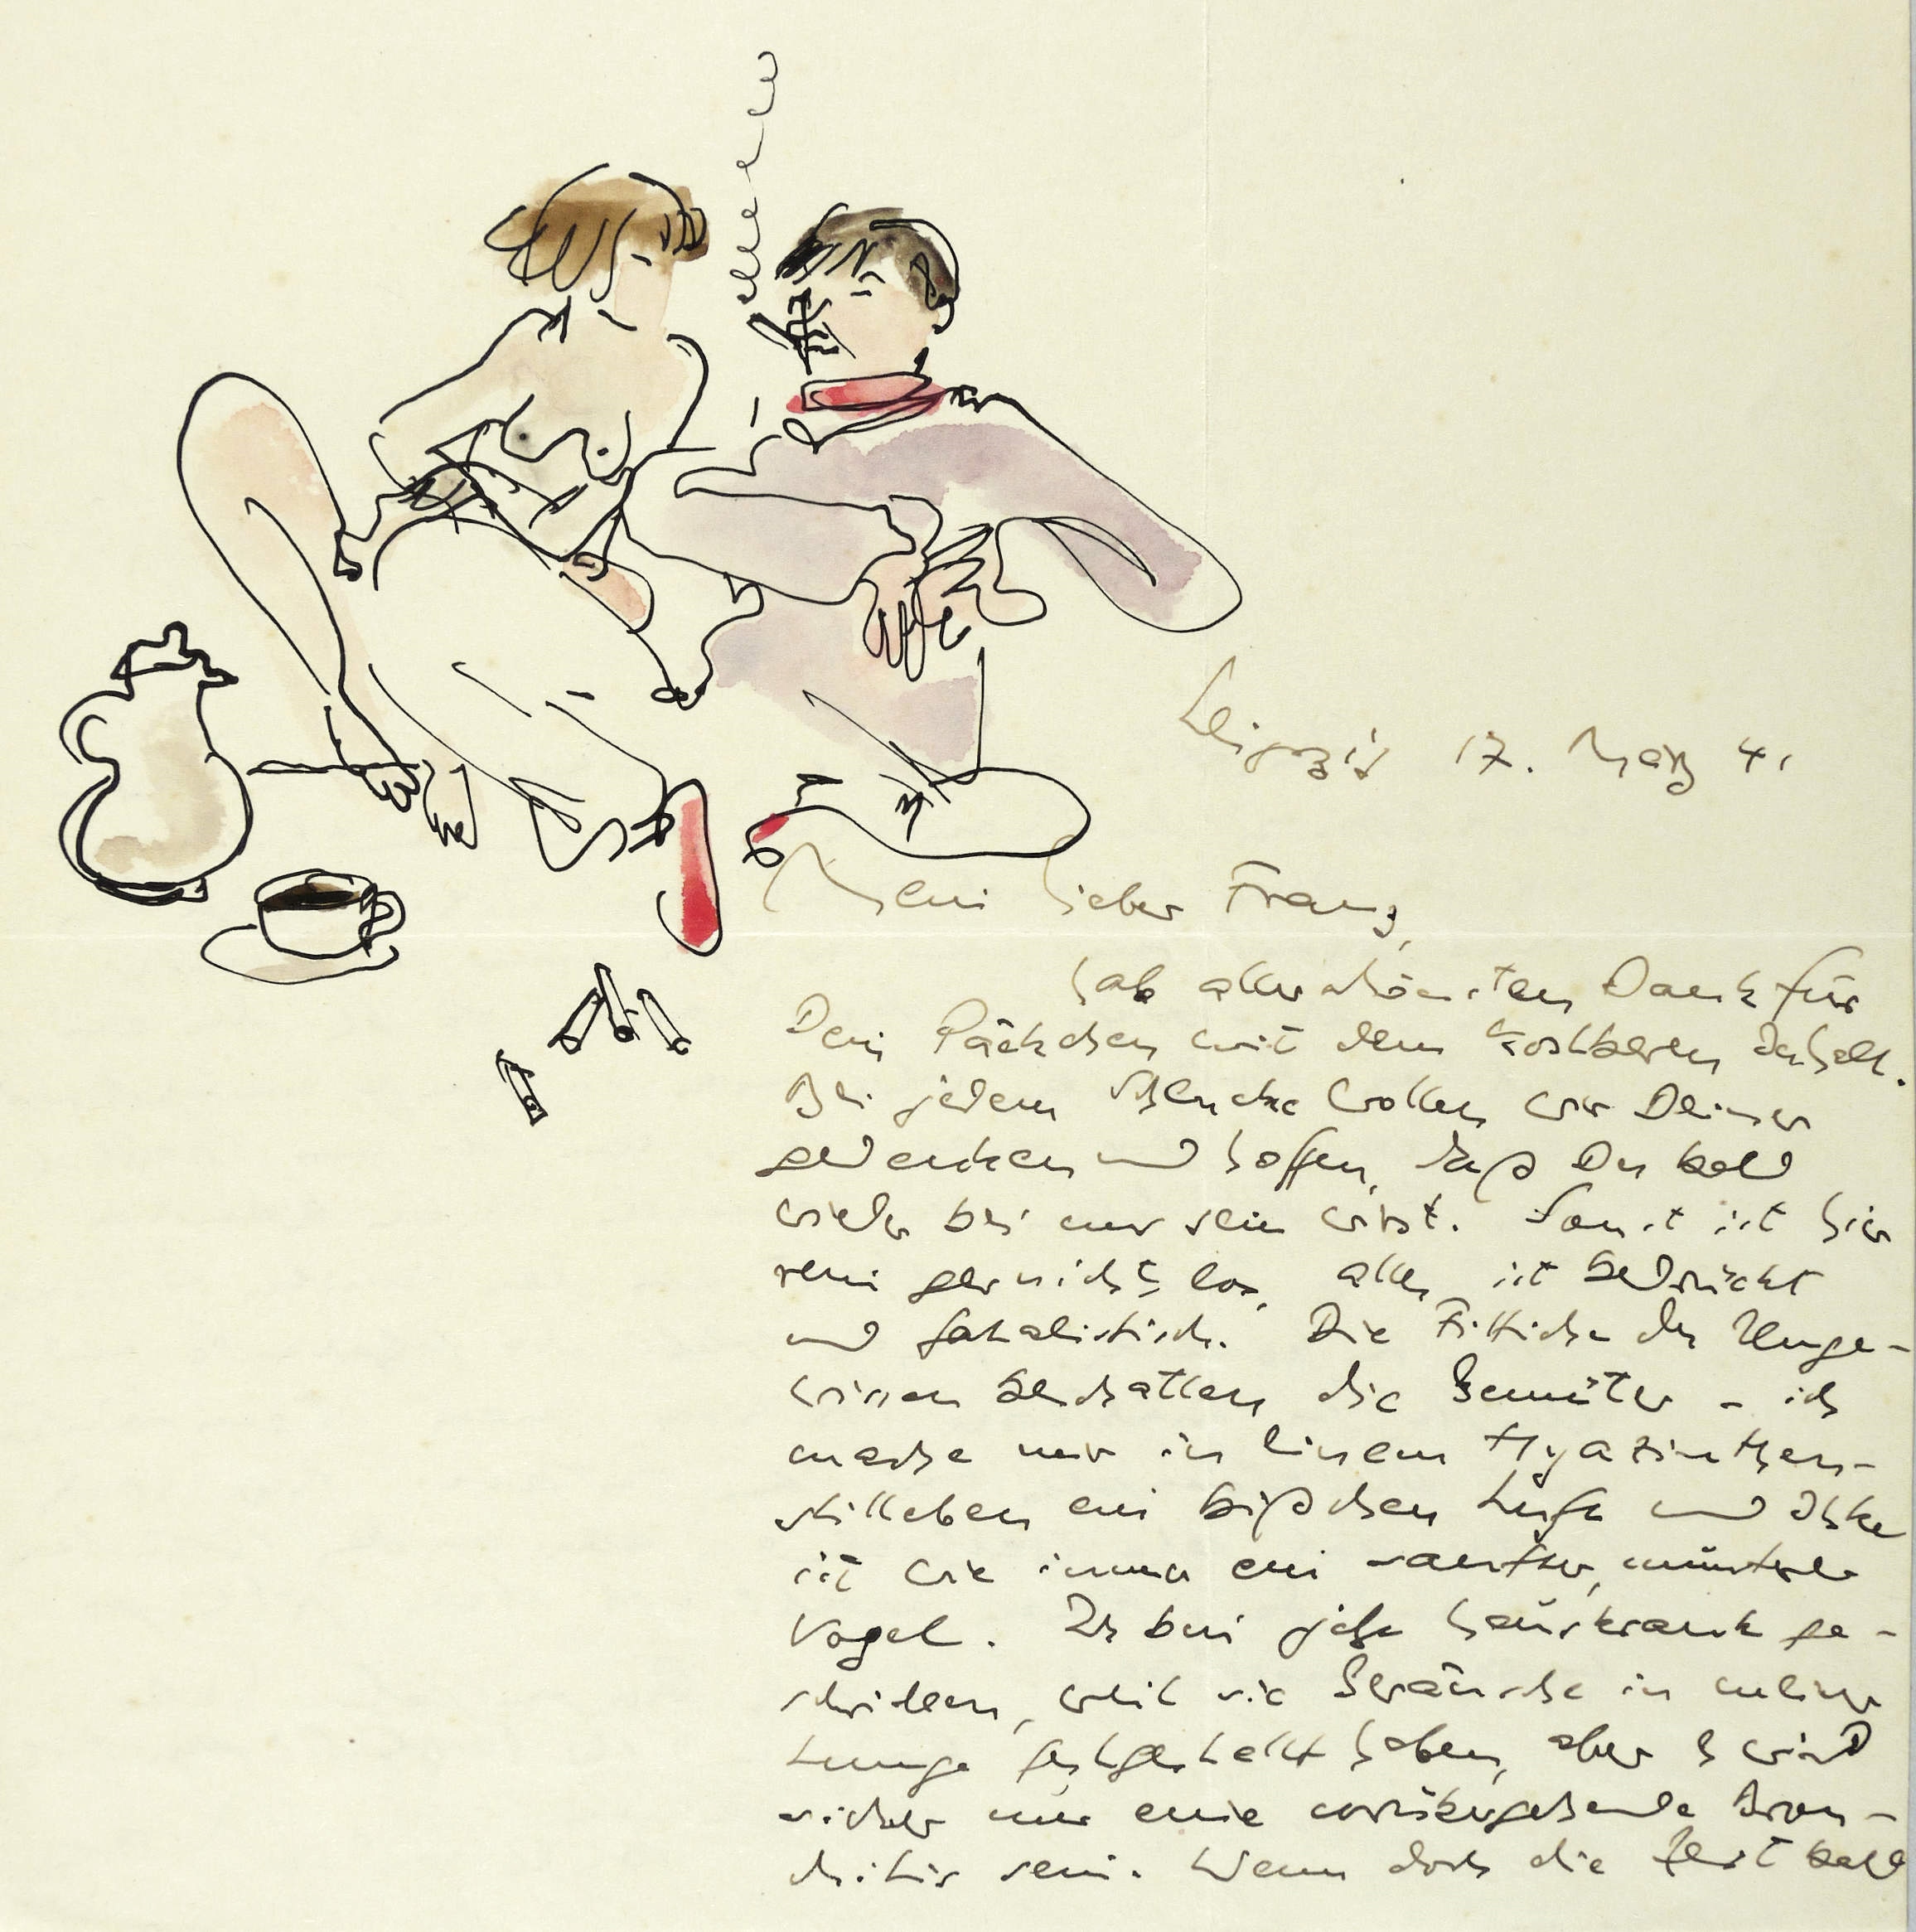 Leipzig 17. März 41
Mein lieber Franz,
hab allerschönsten Dank für
Dein Päckchen mit dem kostbaren Inhalt.
Bei jedem Schlucke wollen wir Deiner
gedenken und hoffen, daß Du bald
wieder bei uns sein wirst. Sonst ist hier
rein gar nichts los, alles ist bedrückt
und fatalistisch. Die Fittiche des Unge-
wissen beschatten die Gemüter – ich
mache mir in einem Hyazinthen-
stilleben ein bißchen Luft und
ist wie immer ein sanfter, munterer
Vogel. Ich bin jetzt hauskrank ge-
schrieben, weil sie Geräusche in meiner
Lunge festgestellt haben, aber es wird
sicher nur eine vorübergehende Bron-
chitis sein. Wenn doch die Zeit bald